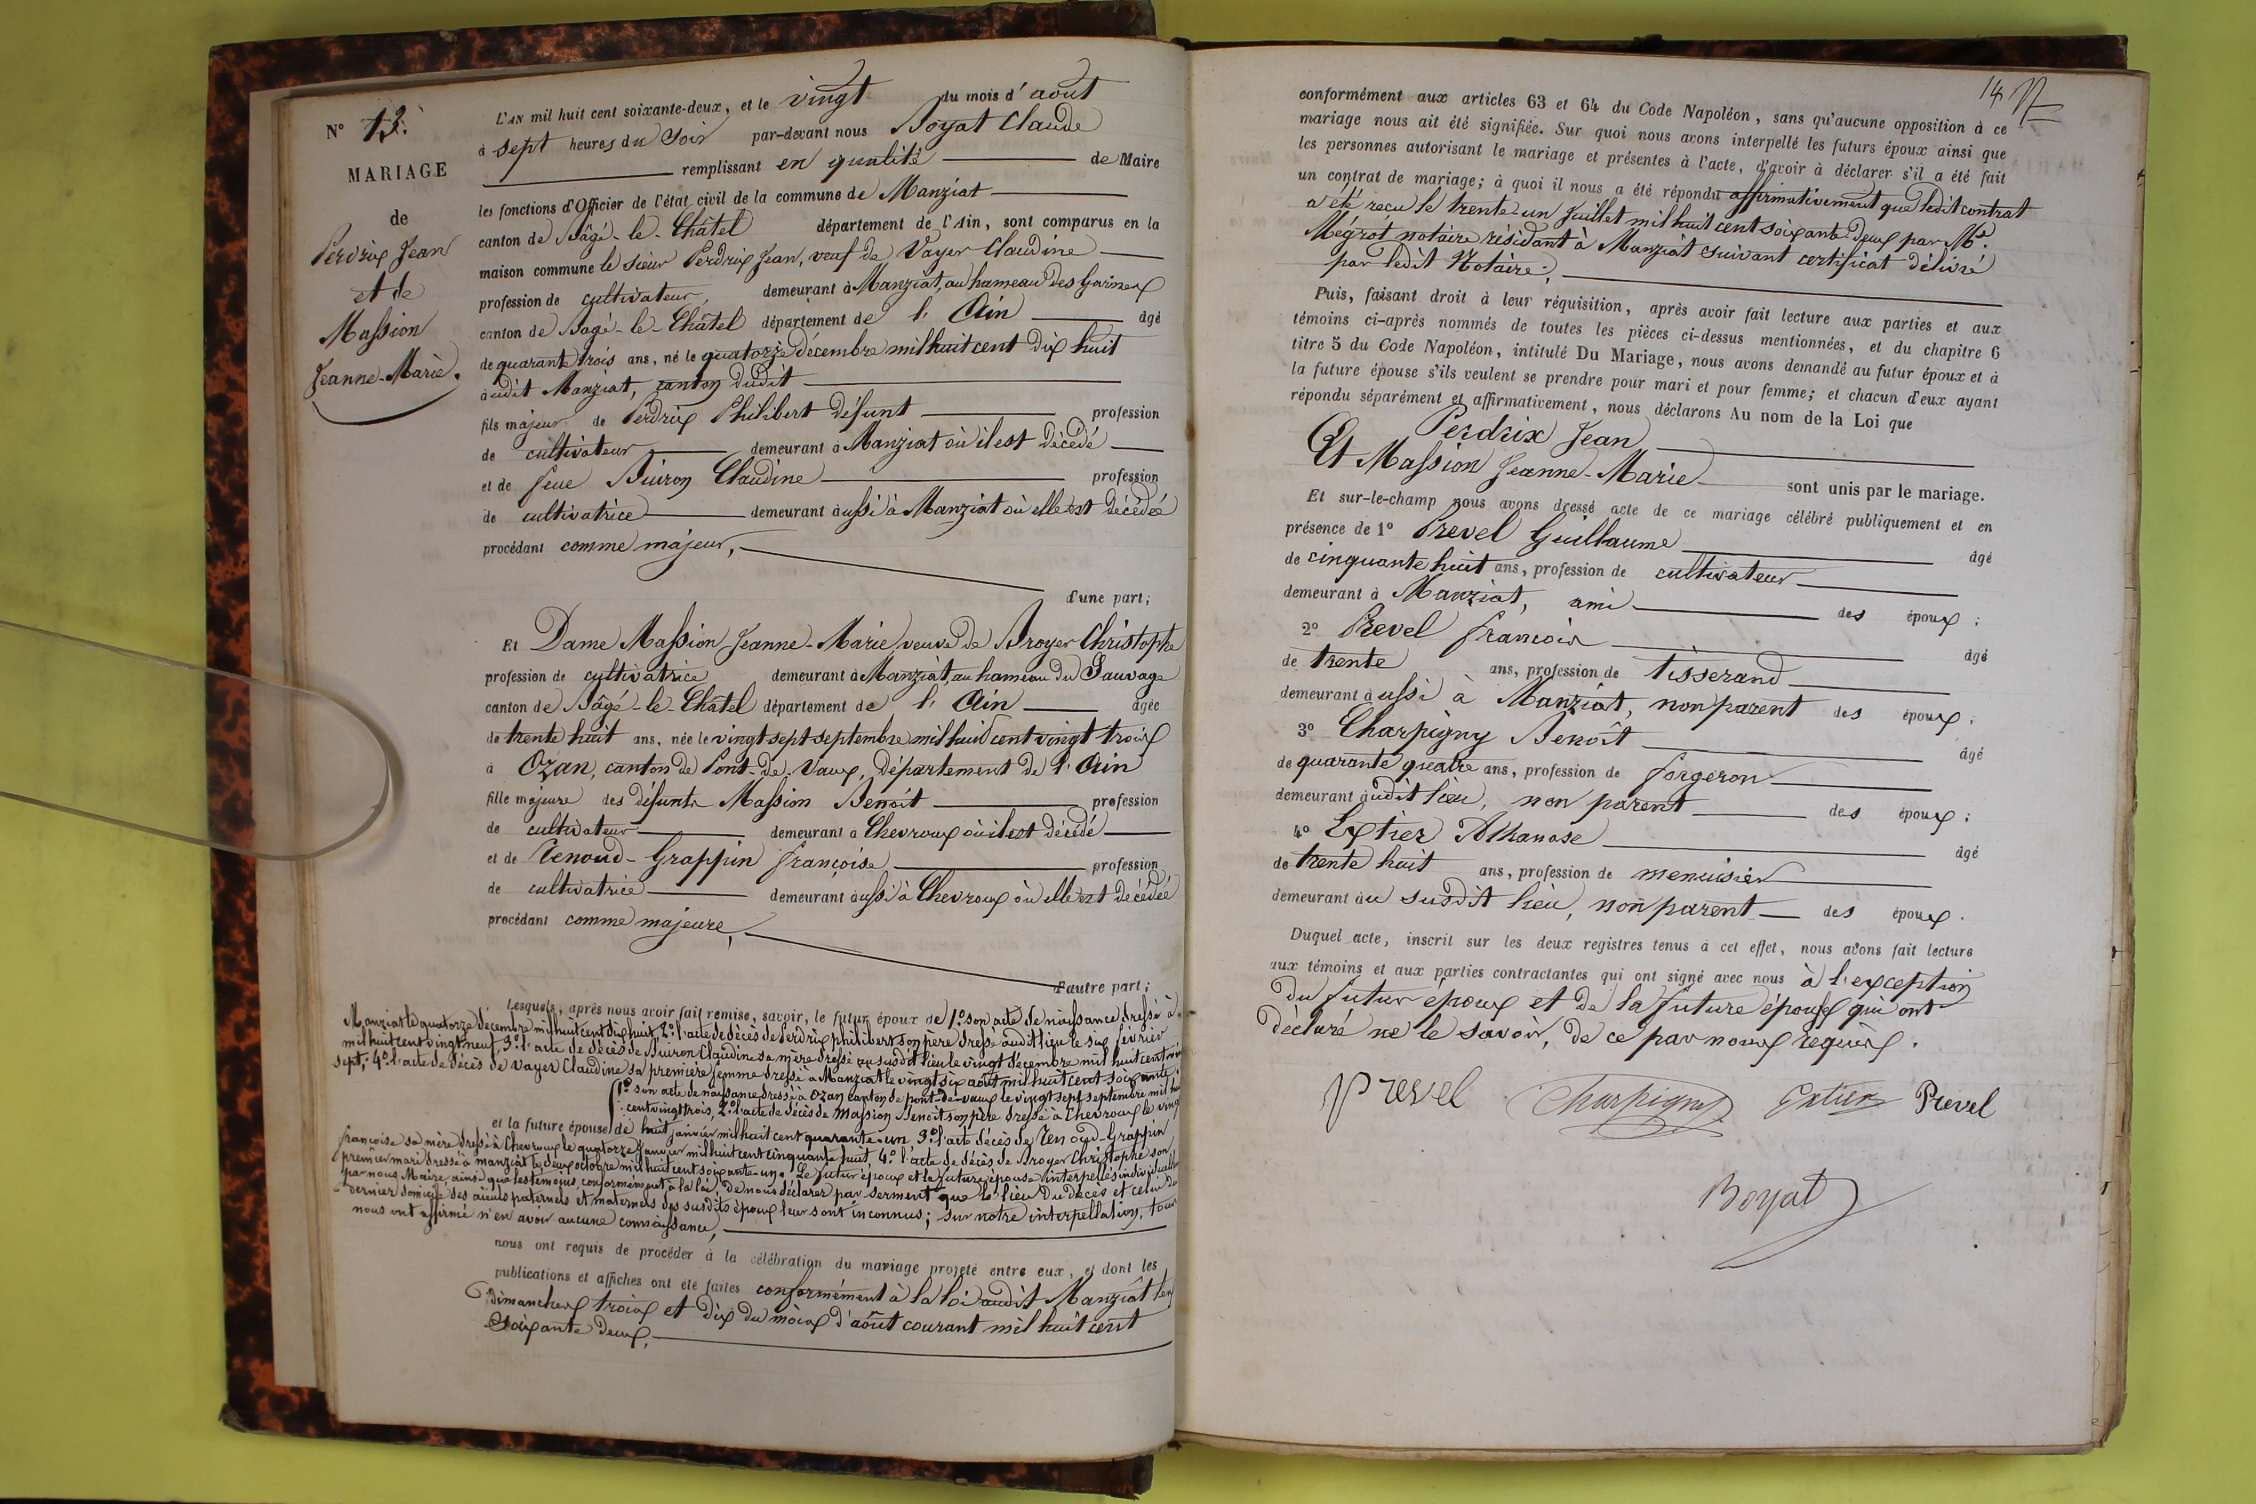 N° 13.
MARIAGE
de
Perdrix Jean
et de
Massion
Jeanne-Marie.
L'AN mil huit cent soixante-deux, et le vingt du mois d'août
à sept heures du soir par-devant nous Boyat Claude
remplissant en qualité de Maire
les fonctions d'Officier de l'état civil de la commune de Manziat
canton de Bâgé-le-Châtel département de l'Ain, sont comparus en la
maison commune le sieur Perdrix Jean, veuf de Vayer Claudine
profession de cultivateur, demeurant à Manziat, au hameau des
canton de Bagé-le-Châtel département de l'Ain âgé
de quarante trois ans, né le quatorze décembre mil huit cent dix huit
àudit Manziat, canton dudit
fils majeur de Perdrix Philibert défunt profession
de cultivateur demeurant à Manziat où il est décédé
et de feue Buiron Claudine profession
de cultivatrice demeurant àussi à Manziat où elle est décédée
procédant comme majeur,
d'une part;
Et Dame Massion Jeanne-Marie, veuve de Broyer Christophe
profession de cultivatrice demeurant à Manziat, au hameau du Sauvage
canton de Bâgé-le-Châtel département de l'Ain âgée
de trente huit ans, née le vingt sept septembre mil huit cent vingt trois
à Ozan, canton de Pont-de-Vaux, département de l'Ain
fille majeure des défunts Massion Benoît profession
de cultivateur demeurant à Chevroux où il est décédé
et de Renoud-Grappin françoise profession
de cultivatrice demeurant àussi à Chevroux où elle est décédée
procédant comme majeure,
d'autre part;
Lesquels, après nous avoir fait remise, savoir, le futur époux de 1° son acte de naissance dressé à
Manziat le quatorze décembre mil huit cent dix huit, 2° l'acte de décès de Perdrix philibert son père dressé audit lieu le six février
mil huit cent vingt neuf, 3° l'acte de décès de Buiron Claudine sa mère dressé au susdit lieu le vingt décembre mil huit cent
sept; 4° l'acte de décès de Vayer Claudine sa première femme dressé à Manziat le vingt six août mil huit cent soixante
1° son acte de naissance dressé à Ozan canton de pont-de-vaux le vingt sept septembre mil
cent vingt trois, 2° l'acte de décès de Massion Benoît son père dressé à Chevroux le vingt
et la future épouse de huit janvier mil huit cent quarante-un 3° l'acte décès de Renoud-Grappin
françoise sa mère dressé à Chevroux le quatorze Janvier mil huit cent cinquante huit 4° l'acte de décès de Broyer Christophe son
premier mari dressé à manziat le deux octobre mil huit cent soixante-un. Le futur époux et la future épouse interpellés
par nous Maire, ainsi que les témoins, conformément à la loi, de nous déclarer par serment que le lieu du décès et celui du
dernier domicile des aïeuls paternels et maternels des susdits époux leur sont inconnus; sur notre interpellation, tous
nous ont affirmé n'en avoir aucune connaissance,
nous ont requis de procéder à la célébration du mariage projeté entre eux, et dont les
publications et affiches ont été faites conformément à la loi audit Manziat les
dimanches trois et dix du mois d'août courant mil huit cent
soixante deux,
14
conformément aux articles 63 et 64 du Code Napoléon, sans qu'aucune opposition à ce
mariage nous ait été signifiée. Sur quoi nous avons interpellé les futurs époux ainsi que
les personnes autorisant le mariage et présentes à l'acte, d'avoir à déclarer s'il a été fait
un contrat de mariage; à quoi il nous a été répondu affirmativement que ledit contrat
a été reçu le trente-un Juillet mil huit cent soixante-deux par Me
Mégrot notaire résidant à Manziat suivant certificat délivré
par ledit Notaire;
Puis, faisant droit à leur réquisition, après avoir fait lecture aux parties et aux
témoins ci-après nommés de toutes les pièces ci-dessus mentionnées, et du chapitre 6
titre 5 du Code Napoléon, intitulé Du Mariage, nous avons demandé au futur époux et à
la future épouse s'ils veulent se prendre pour mari et pour femme; et chacun d'eux ayant
répondu séparément et affirmativement, nous déclarons Au nom de la Loi que
Perdrix Jean
Et Massion Jeanne-Marie sont unis par le mariage.
Et sur-le-champ nous avons dressé acte de ce mariage célébré publiquement et en
présence de 1° Prevel Guillaume âgé
de cinquante huit ans, profession de cultivateur
demeurant à Manziat, ami des époux;
2° Prevel françois âgé
de trente ans, profession de tisserand
demeurant àussi à Manziat, non parent des époux;
3° Charpigny Benoît âgé
de quarante quatre ans, profession de forgeron
demeurant àudit lieu, non parent des époux;
4° Extier Athanase âgé
de trente huit ans, profession de menuisier
demeurant àu susdit lieu, non parent des époux.
Duquel acte, inscrit sur les deux registres tenus à cet effet, nous avons fait lecture
aux témoins et aux parties contractantes qui ont signé avec nous à l'exception
du futur époux et de la future épouse qui ont
déclaré ne le savoir, de ce par nous requis.
Prevel Charpigny Extier Prevel
Boyat